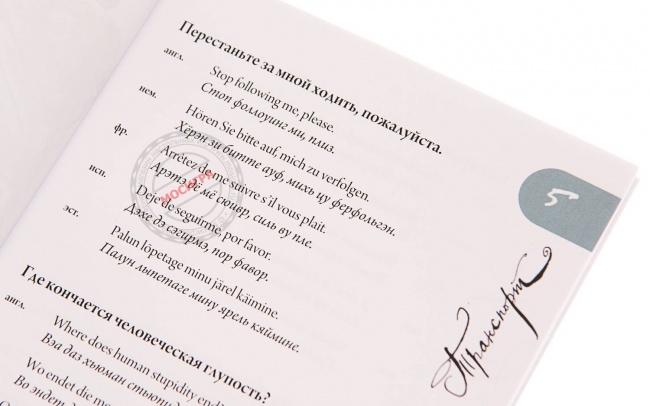 Перестаньте за мной ходить, пожалуйста.
англ.
Stop following me, please.
Стоп фоллоуинг ми, плиз.
нем.
Hören Sie bitte auf, mich zu verfolgen.
Хёрэн зи битте ауф, михь цу ферфольгэн.
фр.
Arrêtez de me suivre s'il vous plait.
Арэтэ дё мё сюивр, силь ву пле.
исп.
Deje de seguirme, por favor.
Дэхе дэ сэгирмэ, пор фавор.
эст.
Palun lõpetage minu järel käimine.
Палун лыпетаге мину ярель кяймине.
Где кончается человеческая глупость?
англ.
Where does human stupidity end
Вэа даз хьюман
Wo endet die
Во эндет
5
Транспорт
МОСИГРА